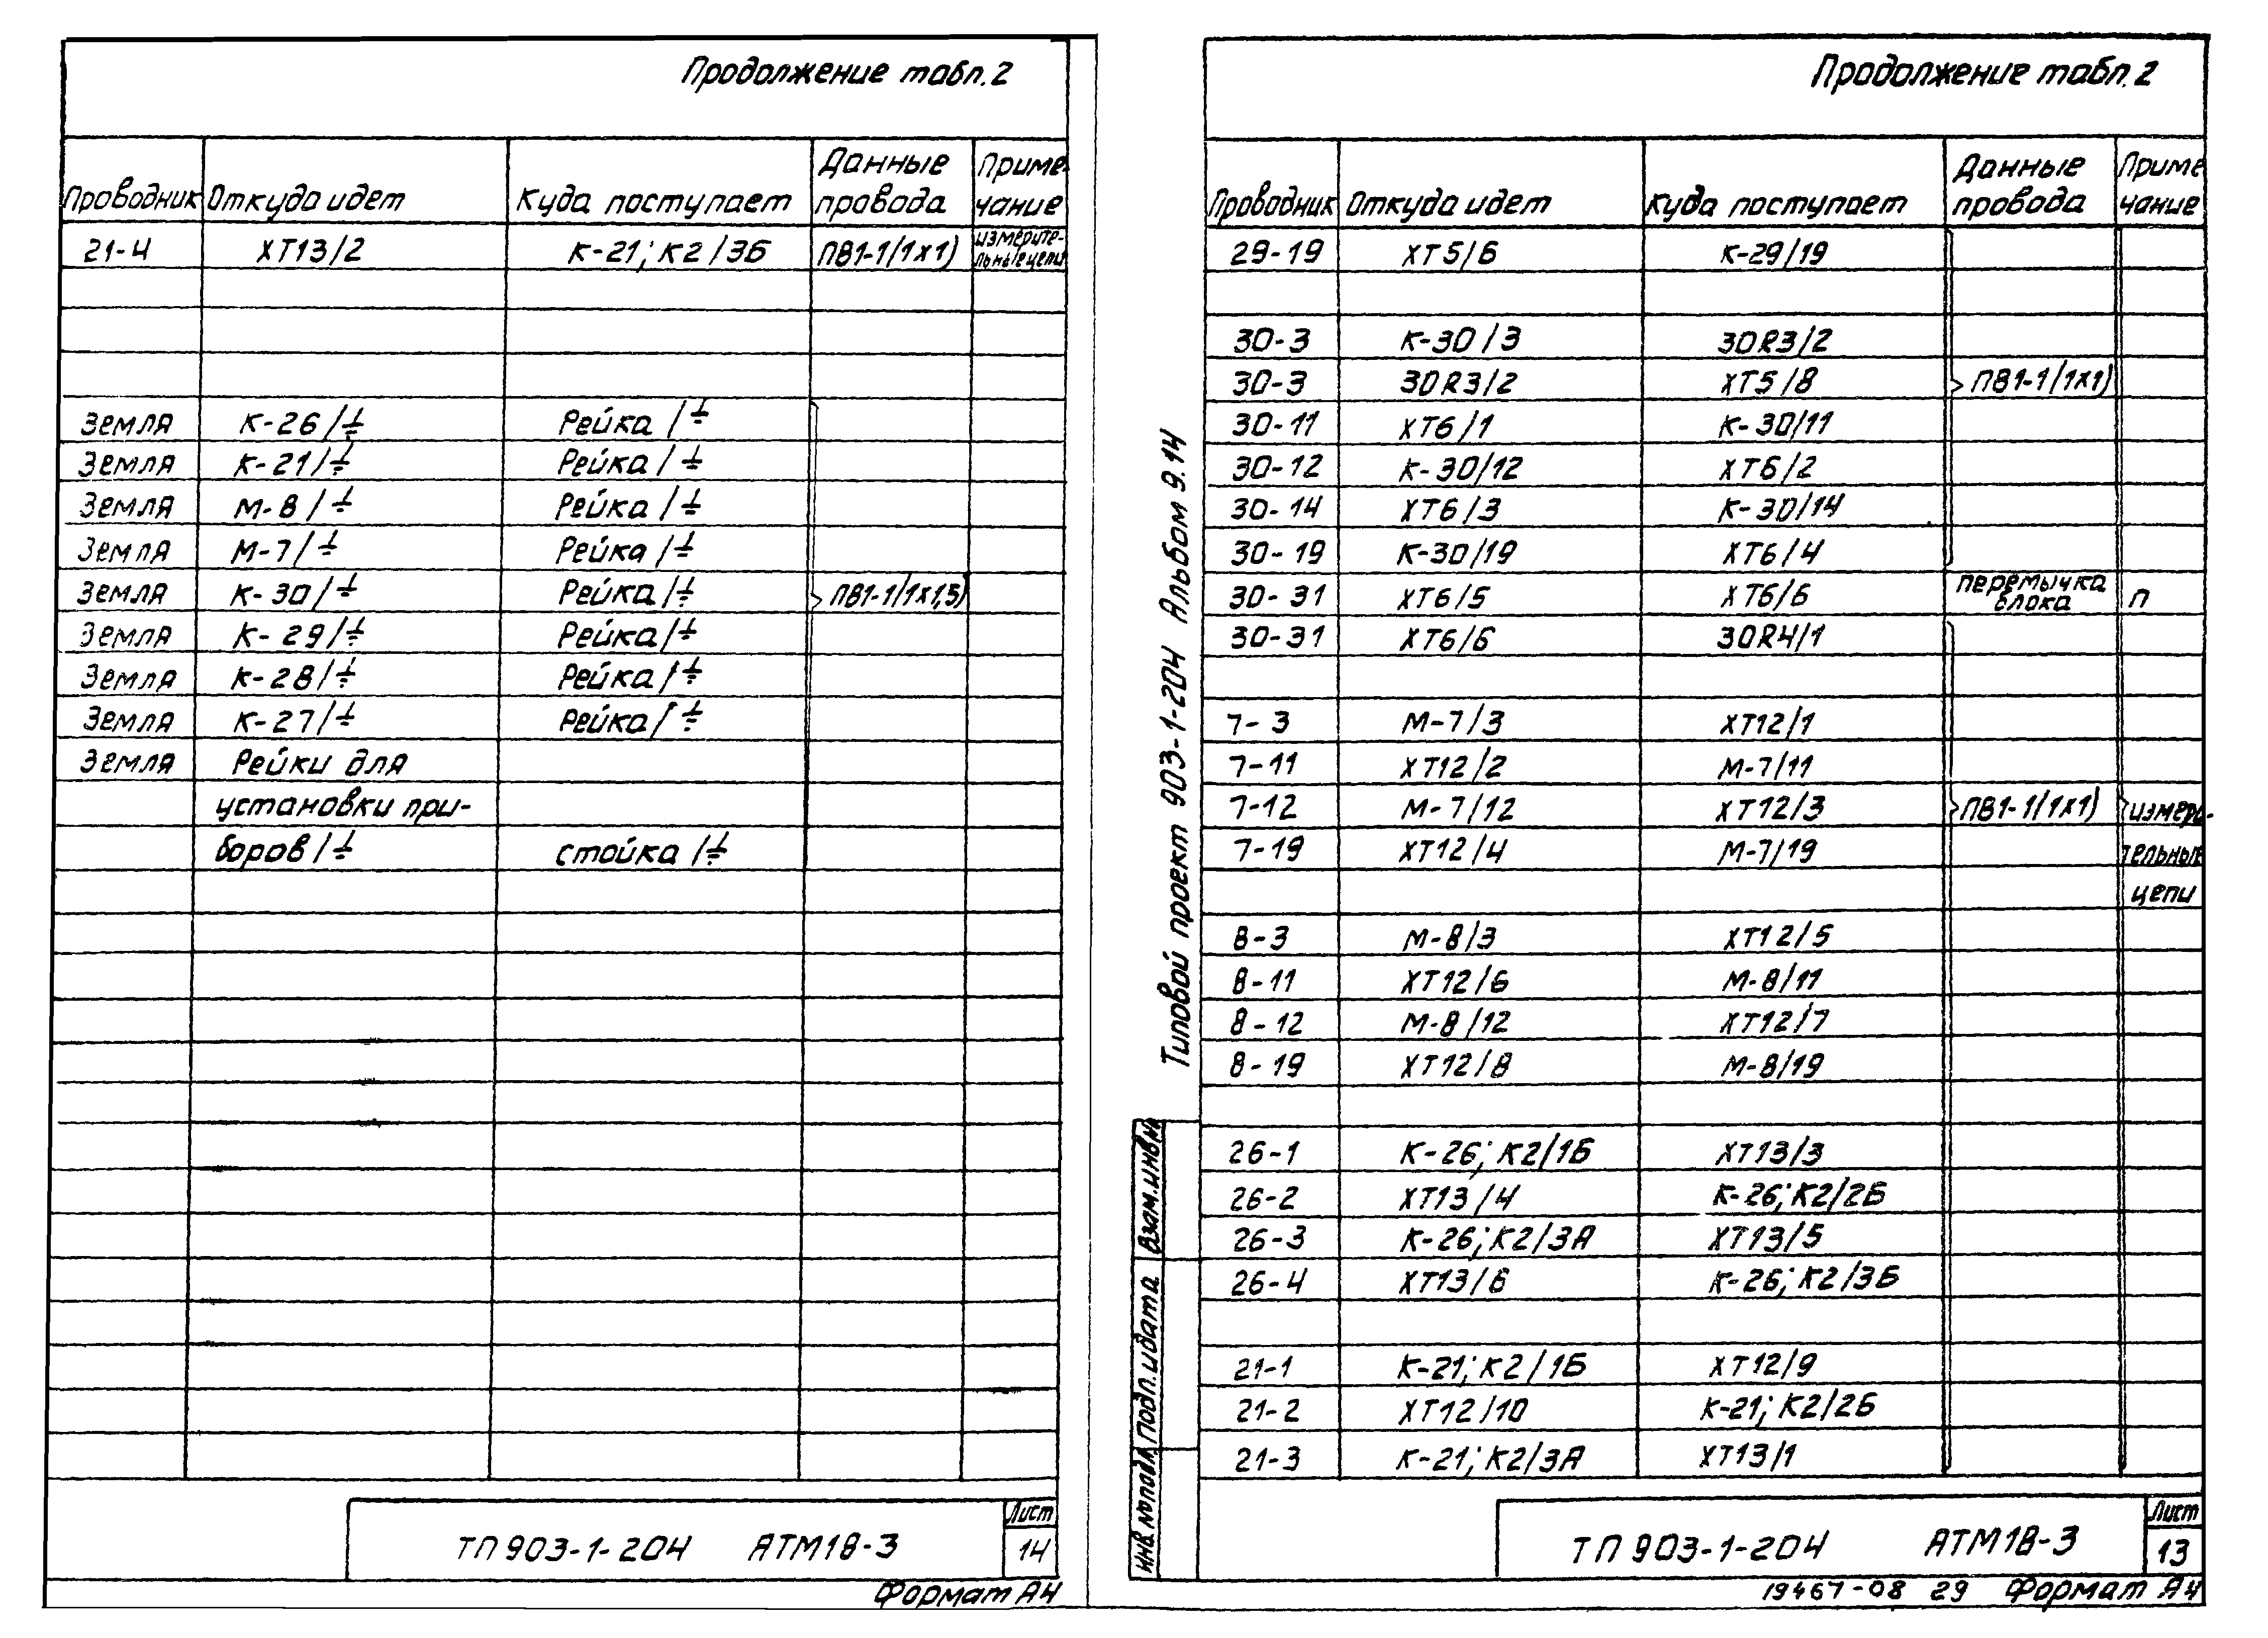 Продолжение табл.2
Проводник Откуда идет Куда поступает Данные провода Примечание
21-4 ХТ13/2 К-21; К2/3Б ПВ1-1/1х1) измерительные цепи
Земля К-26/⏚ Рейка/⏚
Земля К-21/⏚ Рейка/⏚
Земля М-8/⏚ Рейка/⏚
Земля М-7/⏚ Рейка/⏚
Земля К-30/⏚ Рейка/⏚ ПВ1-1/1х1,5)
Земля К-29/⏚ Рейка/⏚
Земля К-28/⏚ Рейка/⏚
Земля К-27/⏚ Рейка/⏚
Земля Рейки для
установки при-
боров/⏚ стойка/⏚
ТП 903-1-204 АТМ18-3
Лист
14
Формат А4
Продолжение табл.2
Проводник Откуда идет Куда поступает Данные провода Примечание
29-19 ХТ5/6 К-29/19
30-3 К-30/3 30R3/2
30-3 30R3/2 ХТ5/8 ПВ1-1/1х1)
30-11 ХТ6/1 К-30/11
30-12 К-30/12 ХТ6/2
30-14 ХТ6/3 К-30/14
30-19 К-30/19 ХТ6/4
30-31 ХТ6/5 ХТ6/6 перемычка блока п
30-31 ХТ6/6 30R4/1
7-3 М-7/3 ХТ12/1
7-11 ХТ12/2 М-7/11
7-12 М-7/12 ХТ12/3 ПВ1-1/1х1) измери-
7-19 ХТ12/4 М-7/19 тельные
цепи
8-3 М-8/3 ХТ12/5
8-11 ХТ12/6 М-8/11
8-12 М-8/12 ХТ12/7
8-19 ХТ12/8 М-8/19
26-1 К-26; К2/1Б ХТ13/3
26-2 ХТ13/4 К-26; К2/2Б
26-3 К-26; К2/3А ХТ13/5
26-4 ХТ13/6 К-26; К2/3Б
21-1 К-21; К2/1Б ХТ12/9
21-2 ХТ12/10 К-21; К2/2Б
21-3 К-21; К2/3А ХТ13/1
Типовой проект 903-1-204 Альбом 9.14
Взам.инв.№
Подп. и дата
Инв.№ подл.
ТП 903-1-204 АТМ18-3
Лист
13
19467-08 29 Формат А4